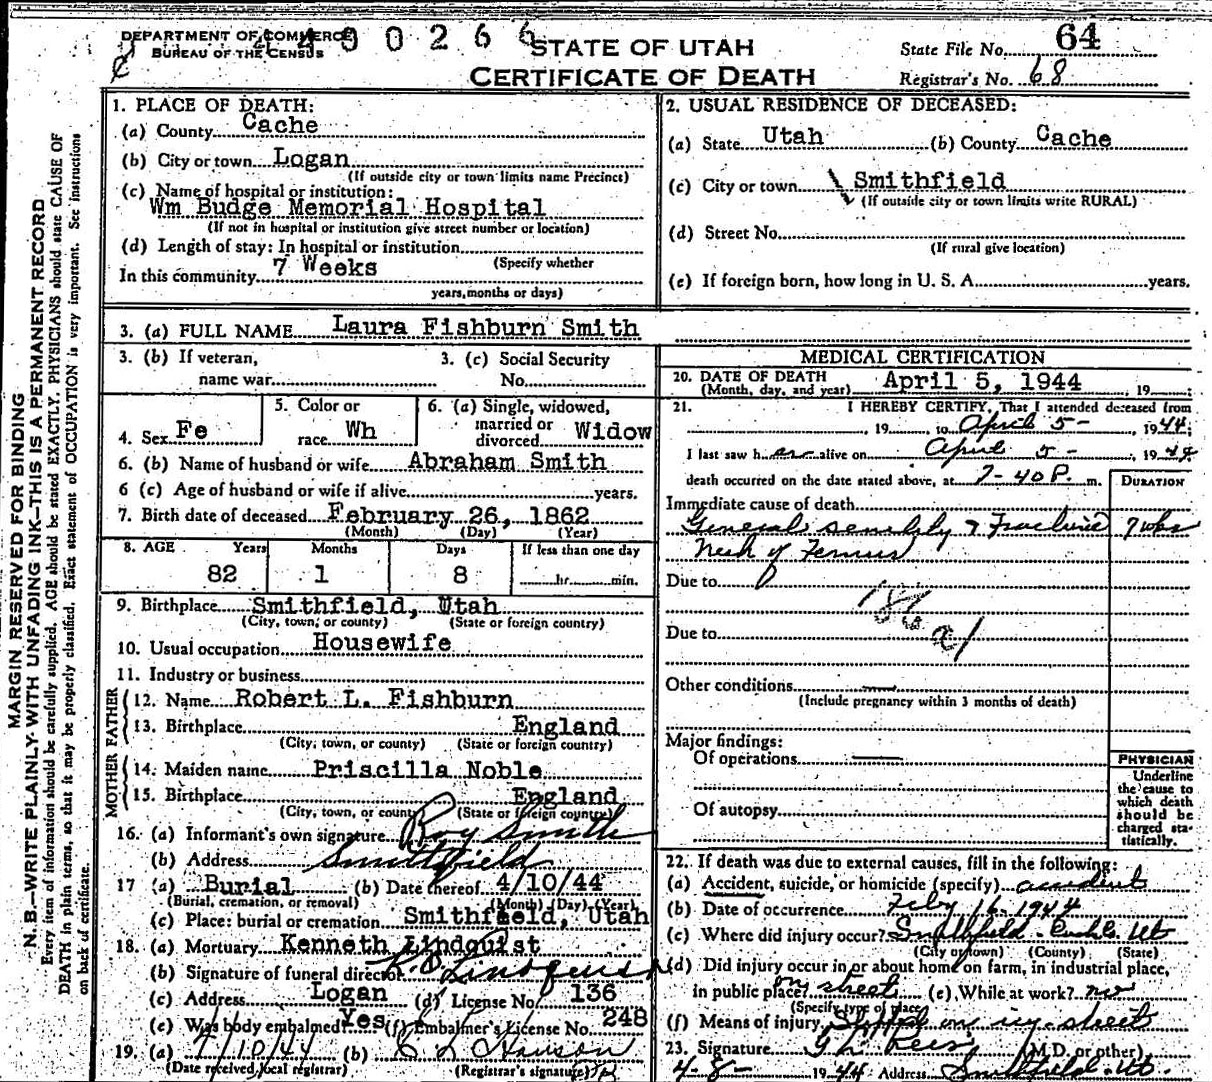 DEPARTMENT OF COMMERCE
BUREAU OF THE CENSUS
STATE OF UTAH
CERTIFICATE OF DEATH
State File No. 64
Registrar's No. 68
MARGIN RESERVED FOR BINDING
N. B.—WRITE PLAINLY WITH UNFADING INK—THIS IS A PERMANENT RECORD
Every item of information should be carefully supplied. AGE should be stated EXACTLY. PHYSICIANS should state CAUSE OF
DEATH in plain terms, so that it may be properly classified. Exact statement of OCCUPATION is very important. See instructions
on back of certificate.
1. PLACE OF DEATH:
(a) County Cache
(b) City or town Logan
(If outside city or town limits name Precinct)
(c) Name of hospital or institution:
Wm Budge Memorial Hospital
(If not in hospital or institution give street number or location)
(d) Length of stay: In hospital or institution
(Specify whether
In this community 7 Weeks
years, months or days)
2. USUAL RESIDENCE OF DECEASED:
(a) State Utah (b) County Cache
(c) City or town Smithfield
(If outside city or town limits write RURAL)
(d) Street No.
(If rural give location)
(e) If foreign born, how long in U. S. A. years.
3. (a) FULL NAME Laura Fishburn Smith
3. (b) If veteran,
name war
3. (c) Social Security
No.
4. Sex Fe
5. Color or
race Wh
6. (a) Single, widowed,
married or
divorced Widow
6. (b) Name of husband or wife Abraham Smith
6 (c) Age of husband or wife if alive years.
7. Birth date of deceased February 26, 1862
(Month) (Day) (Year)
8. AGE Years Months Days If less than one day
82 1 8 hr. min.
9. Birthplace Smithfield, Utah
(City, town, or county) (State or foreign country)
10. Usual occupation Housewife
11. Industry or business
FATHER
12. Name Robert L. Fishburn
13. Birthplace England
(City, town, or county) (State or foreign country)
MOTHER
14. Maiden name Priscilla Noble
15. Birthplace England
(City, town, or county) (State or foreign country)
16. (a) Informant's own signature Roy Smith
(b) Address Smithfield
17 (a) Burial (b) Date thereof 4/10/44
(Burial, cremation, or removal) (Month) (Day) (Year)
(c) Place: burial or cremation Smithfield, Utah
18. (a) Mortuary Kenneth Lindquist
(b) Signature of funeral director Lindquist
(c) Address Logan (d) License No. 136
(e) Was body embalmed Yes (f) Embalmer's License No. 248
19. (a) 4/10/44 (b)
(Date received local registrar) (Registrar's signature)
MEDICAL CERTIFICATION
20. DATE OF DEATH
(Month, day, and year) April 5, 1944, 19
21. I HEREBY CERTIFY, That I attended deceased from
, 19 to April 5 - , 1944;
I last saw her alive on April 5 - , 1944
death occurred on the date stated above, at 7-40 P. m.
DURATION
Immediate cause of death
General senility & Fracture 7 wks
Neck of Femur
Due to
186 a1
Due to
Other conditions —
(Include pregnancy within 3 months of death)
Major findings:
Of operations —
Of autopsy
PHYSICIAN
Underline
the cause to
which death
should be
charged sta-
tistically.
22. If death was due to external causes, fill in the following:
(a) Accident, suicide, or homicide (specify) accident
(b) Date of occurrence Feby 16-1944
(c) Where did injury occur? Smithfield - Cache Ut
(City or town) (County) (State)
(d) Did injury occur in or about home on farm, in industrial place,
in public place? on street (e) While at work? no
(Specify type of place)
(f) Means of injury Slipped on icy street
23. Signature (M.D. or other)
4-8- 1944 Address Smithfield Ut.